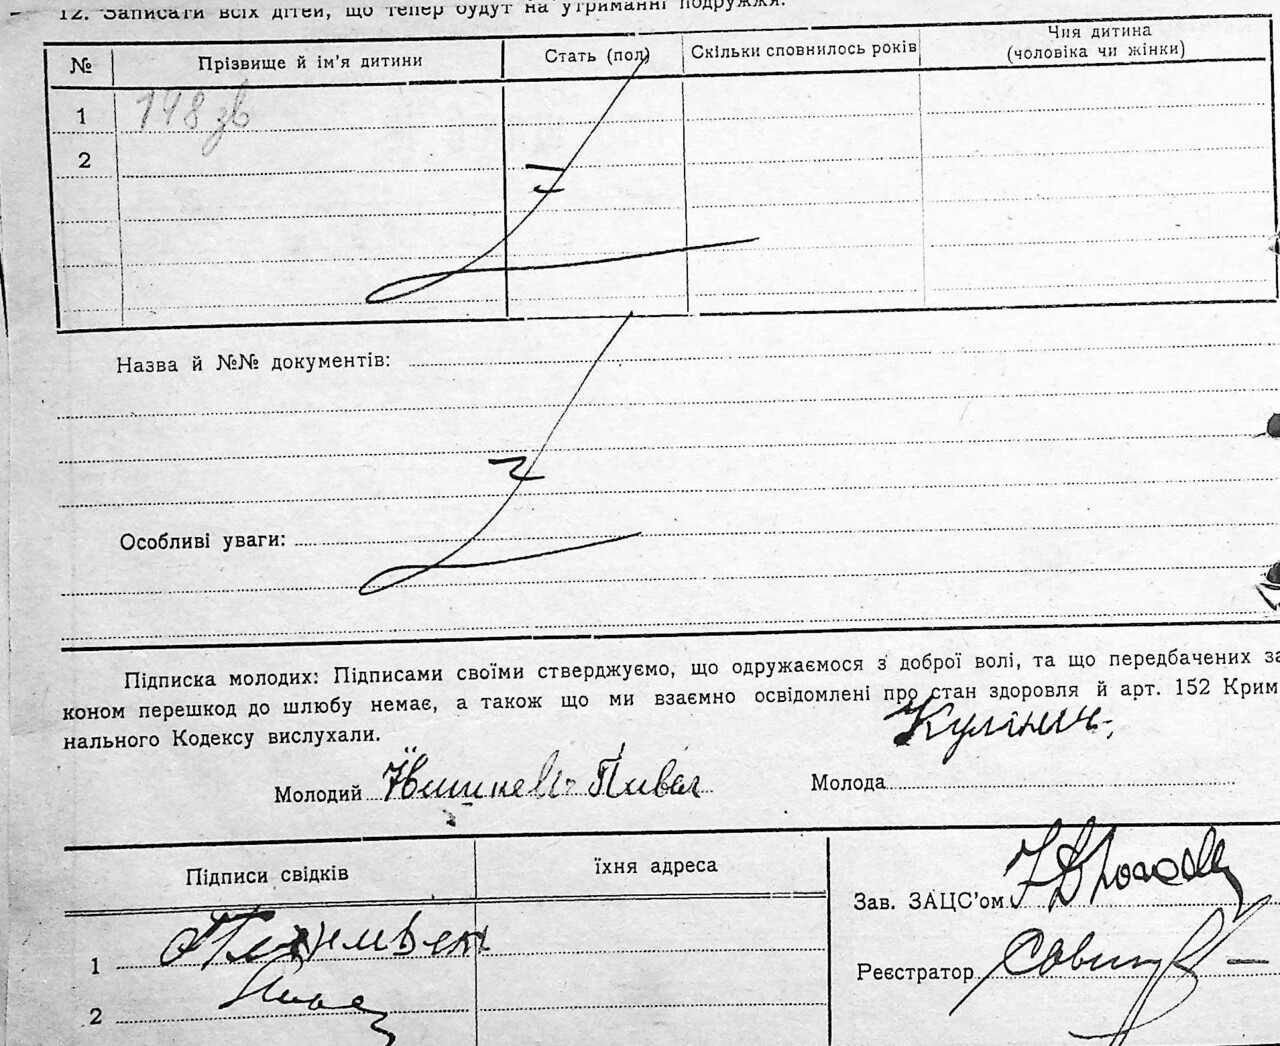 12. Записати всіх дітей, що тепер будут на утриманні подружжя.
№ Прізвище й ім'я дитини Стать (пол) Скільки сповнилось років Чия дитина (чоловіка чи жінки)
1 148 зв
2
Назва й №№ документів:
Особливі уваги:
Підписка молодих: Підписами своїми стверджуємо, що одружаємося з доброї волі, та що передбачених за
коном перешкод до шлюбу немає, а також що ми взаємно освідомлені про стан здоровля й арт. 152 Крим
нального Кодексу вислухали.
Молодий Молода
Підписи свідків їхня адреса
Зав. ЗАЦС'ом
1
Реєстратор
2